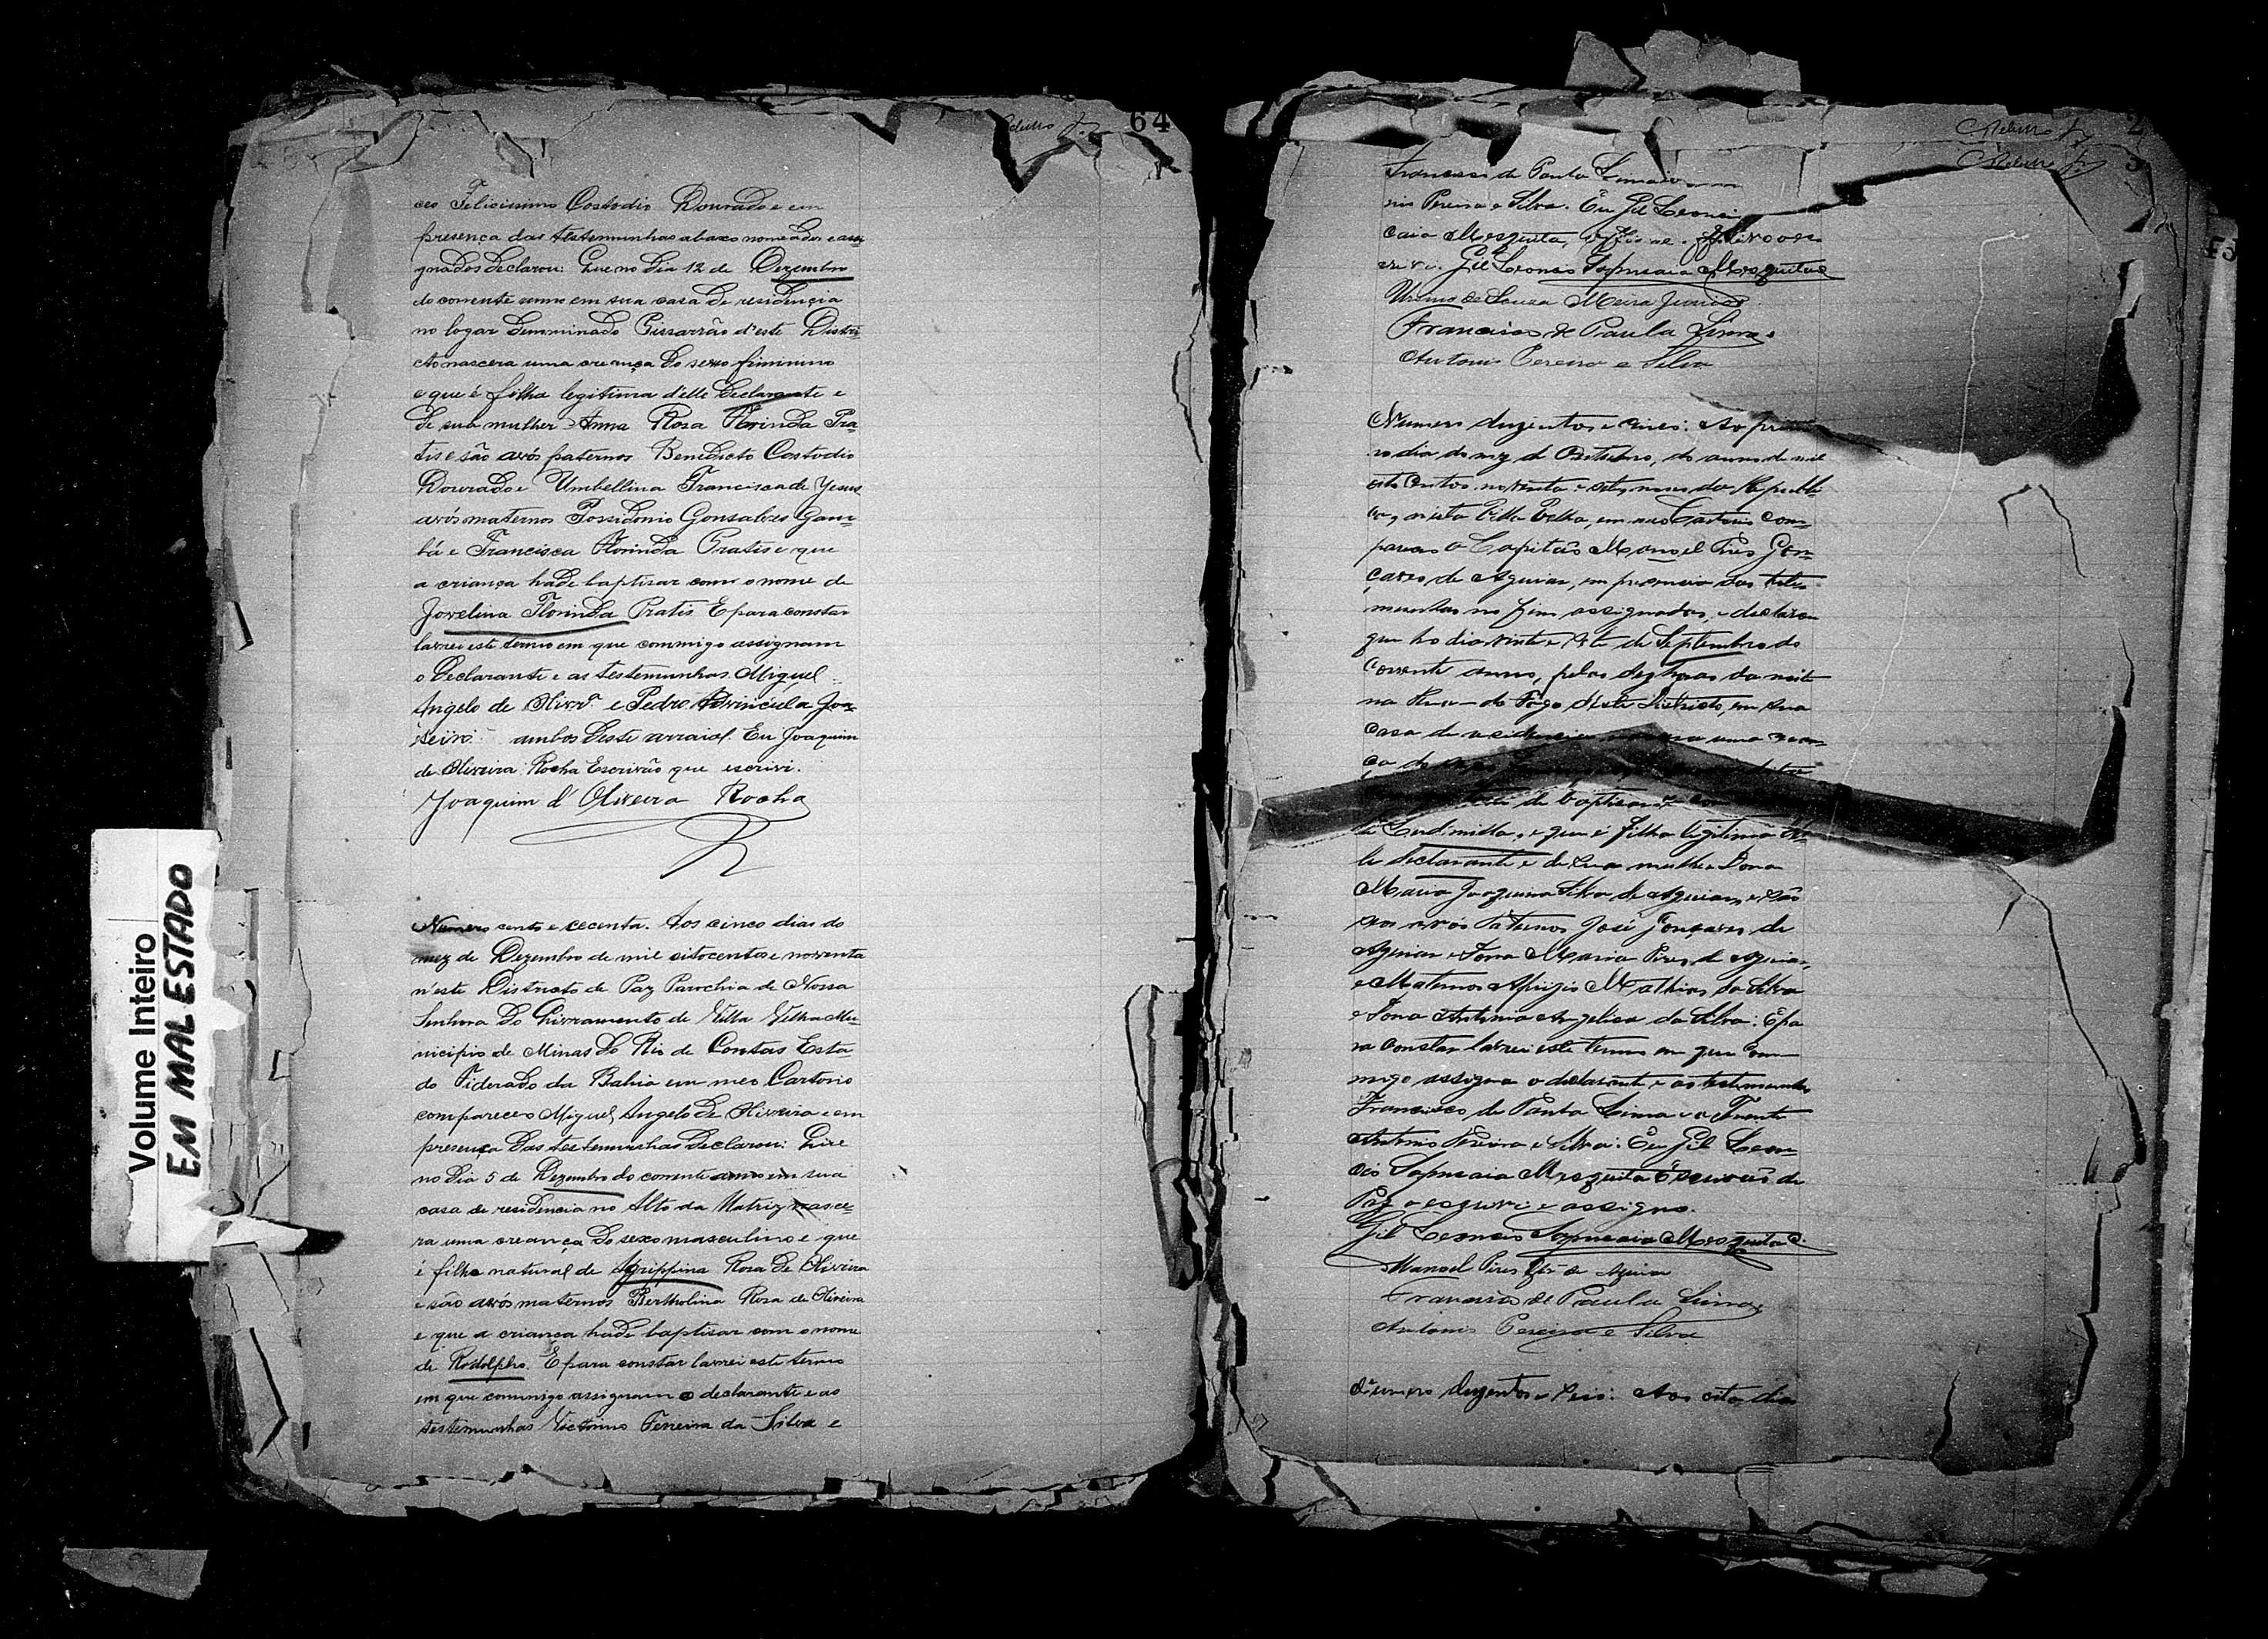 64
ceo Felicissimo Costodio Dourado e em
presença das testemunhas abaxo nomeados e assi
gnados declarou: Que no dia 12 de Dezembro
do corrente anno em sua casa de residencia
no logar denominado Pissarrão d'este Distri-
cto nascera uma creança do sexo feminino
e que é filha legitima d'elle Declarante e
de sua mulher Anna Rosa Florinda Pra-
tis e são avós paternos Benedicto Costodio
Dourado e Umbellina Francisca de Jesus
avós maternos Possidonio Gonsalves Gam-
bá e Francisca Florinda Pratis e que
a criança hade baptisar com o nome de
Jovelina Florinda Pratis. E para constar
lavrei este termo em que commigo assignam
o Declarante e as testemunhas Miguel
Angelo de Olivrª e Pedro
ambos deste arraial. Eu Joaquim
de Oliveira Rocha Escrivão que escrivi.
Joaquim d'Oliveira Rocha
Numero cento e cecenta. Aos cinco dias do
mez de Dezembro de mil oitocentos e noventa
n'este Districto de Paz Parochia de Nossa
Senhora do Livramento de Villa Velha Mu-
nicipio de Minas do Rio de Contas Esta-
do Federado da Bahia em meo Cartorio
compareceo Miguel Angelo de Oliveira e em
presença das testemunhas declarou: Que
no dia 5 de Dezembro do corrente anno em sua
casa de residencia no Alto da Matriz nasce-
ra uma creança do sexo masculino e que
é filho natural de Agrippina Rosa de Oliveira
e são avós maternos Bertholina Rosa de Oliveira
e que a criança hade baptisar com o nome
de Rodolpho. E para constar lavrei este termo
em que commigo assignam o declarante e as
testemunhas Victorino Ferreira da Silva e
Volume Inteiro
EM MAL ESTADO
Francisco de Paula
nio Pereira e Silva. Eu Gil Leonci
caia Mesquita,
crivi. Gil Leoncio Sapucaia Mesquita
Ursino de Souza Meira Junior
Francisco de Paula Lima
Antonio Pereira e Silva
Numero duzentos e cinco: Ao primei
ro dia do mez de Outubro, do anno de mil
oito centos noventa e sete, nono da Republi
ca, nesta Villa Velha, em meo Cartorio com-
pareceo o Capitão Manoel Pires Gon-
çaves de Aguiar, em presença das teste
munhas no fim assignadas, e declarou
que no dia vinte e sete de Septembro do
corrente anno, pelas dez horas da noite
na Rua do Fogo deste Districto, em sua
casa de residencia uma crean
ça do
de baptisar
de Ludimilla, e que é filha legitima del
le declarante e de sua mulher Dona
Maria Joaquina Silva de Aguiar, e são
seos avós Paternos José Gonçaves de
Aguiar e Dona Maria Pires de Aguiar,
e Maternos Aprigio Mathias da Silva
e Dona Antonia Angelica da Silva: E pa
ra constar lavrei este termo em que com-
migo assigna o declarante e as testemunhas
Francisco de Paula Lima e o Tenente
Antonio Pereira e Silva: Eu Gil Leon-
cio Sapucaia Mesquita Escrivão de
Paz o escrivi e assigno.
Gil Leoncio Sapucaia Mesquita
Manoel Pires Gês de Aguiar
Francisco de Paula Lima
Antonio Pereira e Silva
Numero duzentos e seis: Aos oito dias